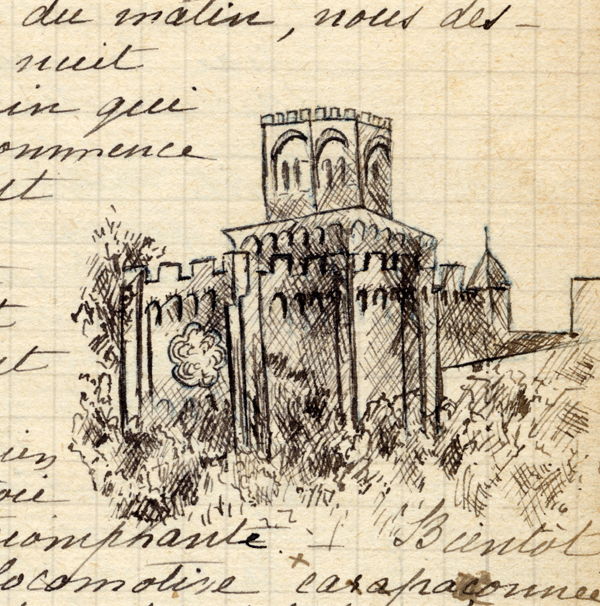 du matin, nous des-
nuit
in qui
ommence
ut
t
ut
ien
oie
iomphante. - Bientôt
locomotive carapaçonnée